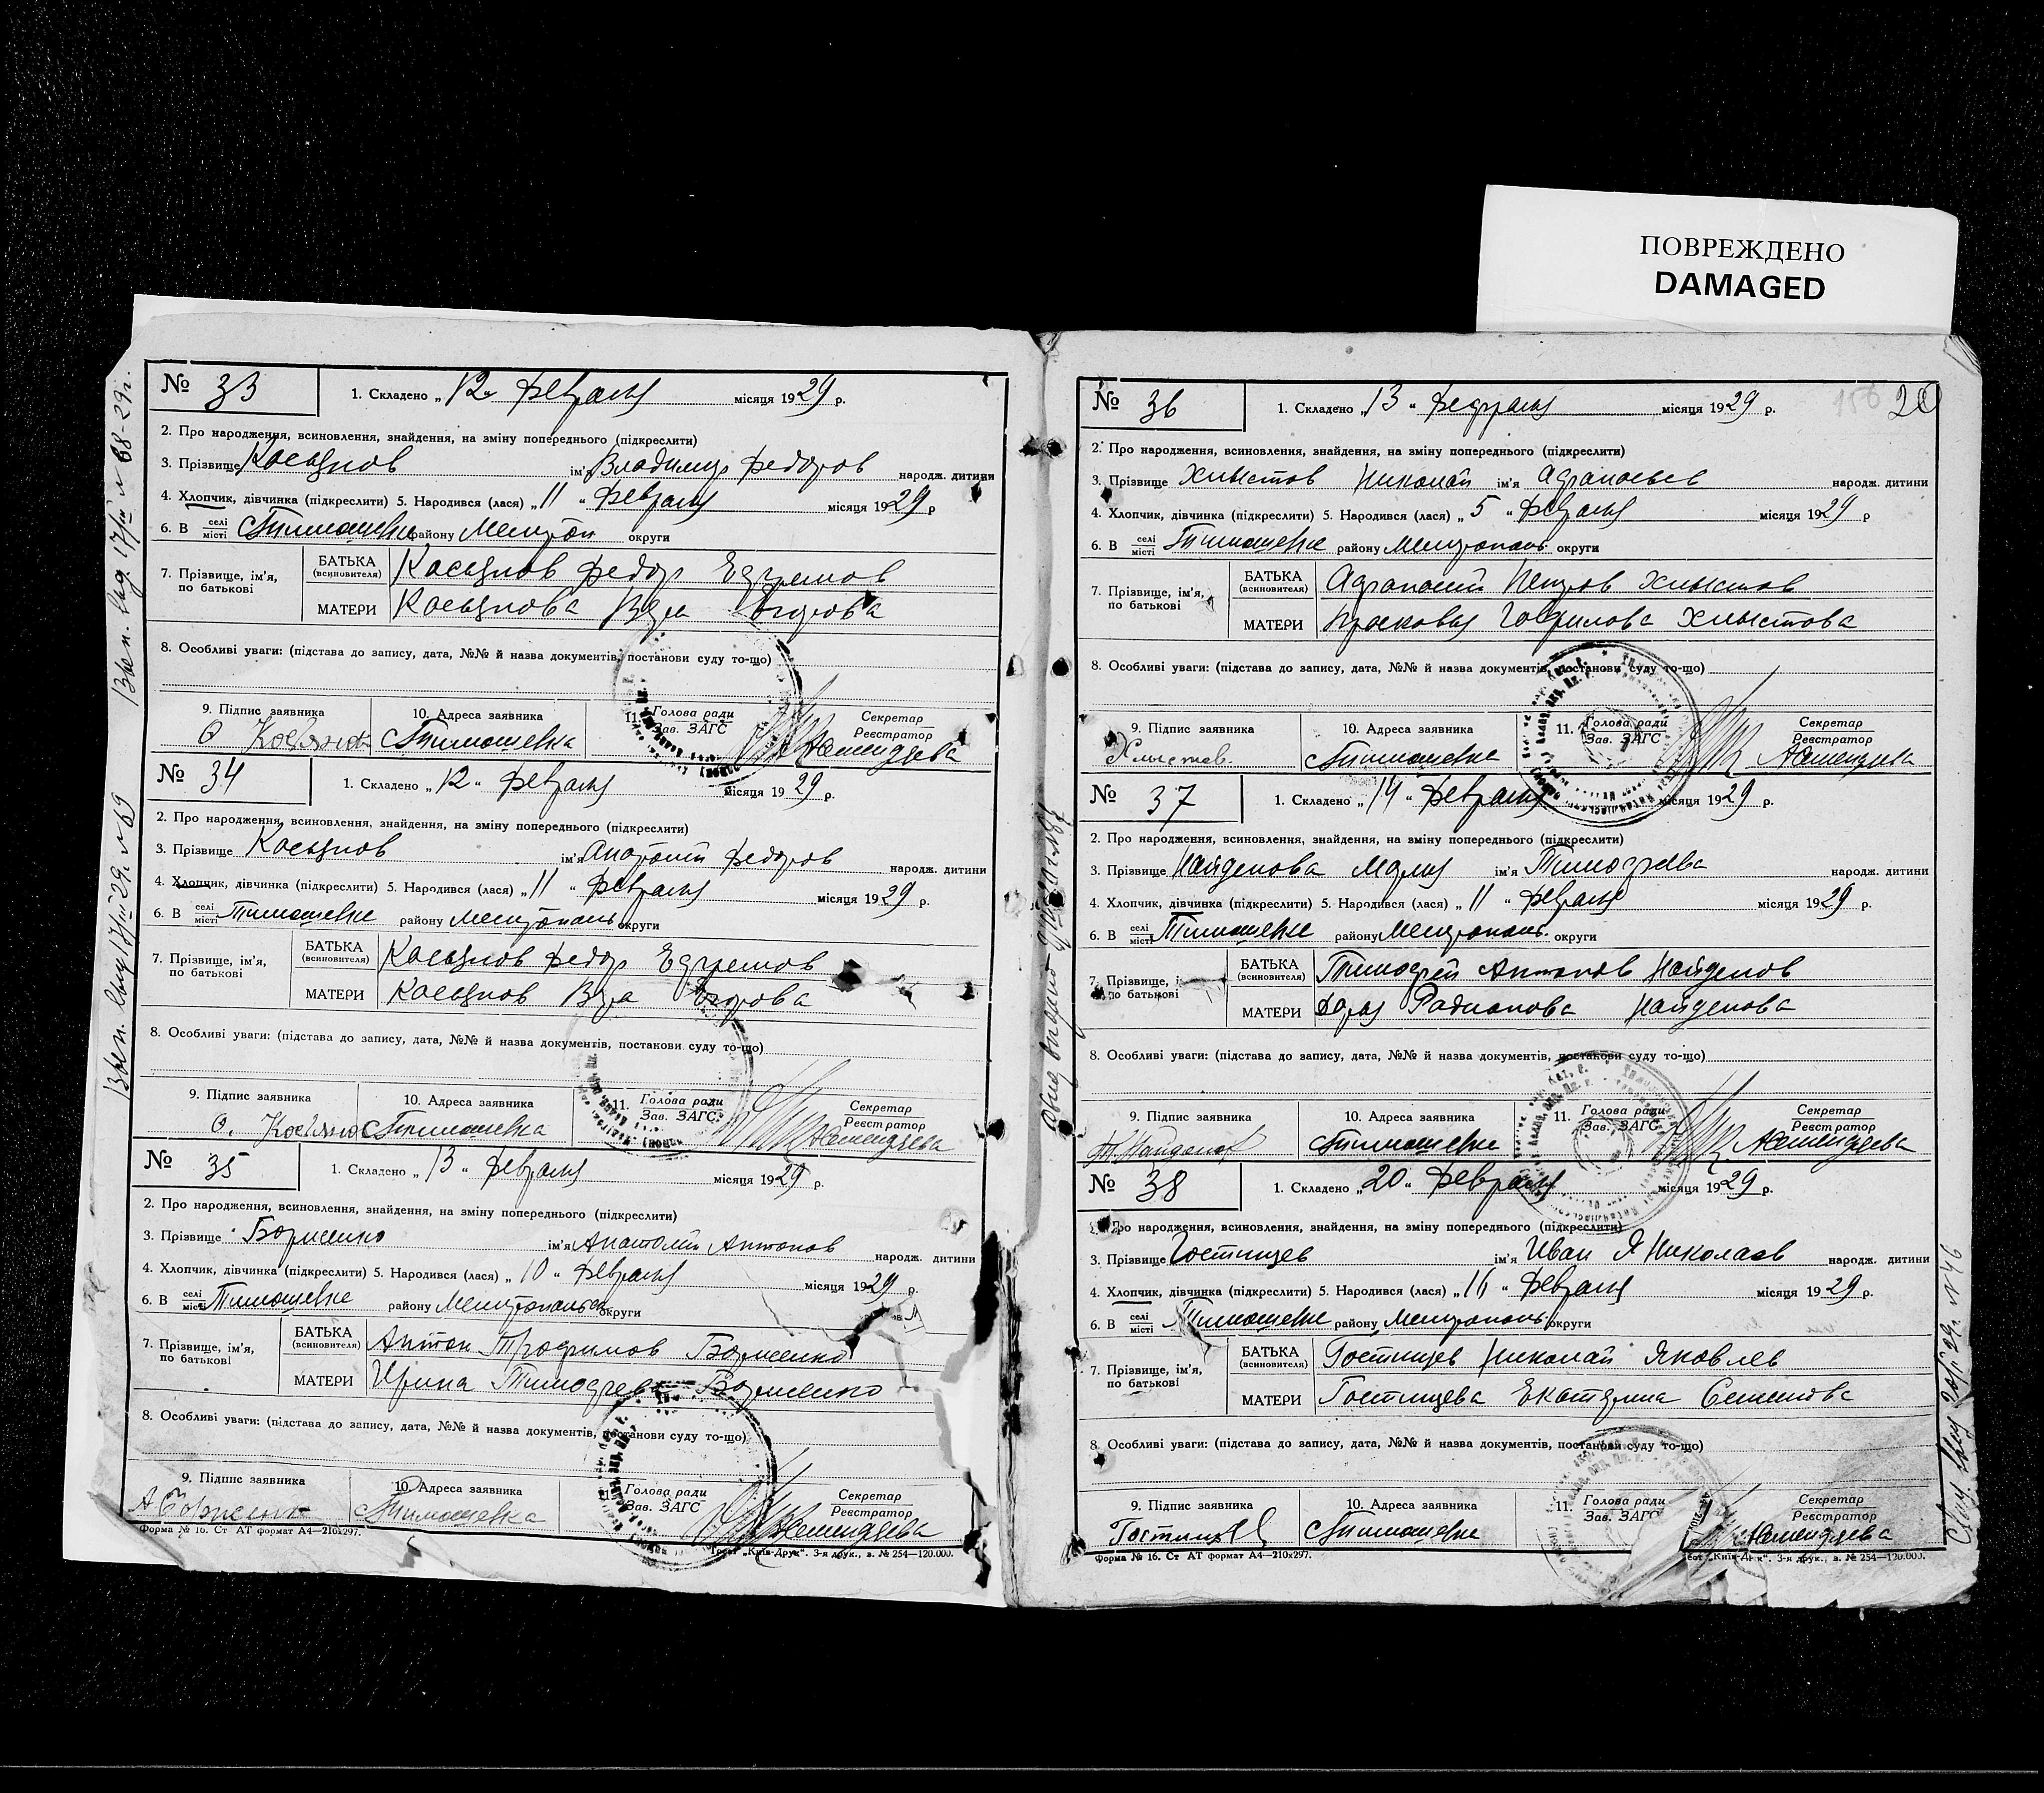 ПОВРЕЖДЕНО
DAMAGED
№ 33
1. Складено „12" февраля місяця 1929 р.
2. Про народження, всиновлення, знайдення, на зміну попереднього (підкреслити)
3. Прізвище ім'я Владимир Федоров народж. дитини
4. Хлопчик, дівчинка (підкреслити) 5. Народився (лася) „11" февраля місяця 1929 р
6. В селі місті Тимошевке району Мелитоп округи
7. Прізвище, ім'я, по батькові
БАТЬКА (всиновителя) Федор Ефремов
МАТЕРИ Вера
8. Особливі уваги: (підстава до запису, дата, №№ й назва документів, постанови суду то-що)
9. Підпис заявника
10. Адреса заявника Тимошевка
11. Голова ради Зав. ЗАГС
Секретар Реєстратор
№ 34
1. Складено „12" февраля місяця 1929 р.
2. Про народження, всиновлення, знайдення, на зміну попереднього (підкреслити)
3. Прізвище ім'я Анатолий Федоров народж. дитини
4. Хлопчик, дівчинка (підкреслити) 5. Народився (лася) „11" февраля місяця 1929 р.
6. В селі місті Тимошевке району Мелитополь округи
7. Прізвище, ім'я, по батькові
БАТЬКА (всиновителя) Федор Ефремов
МАТЕРИ Вера
8. Особливі уваги: (підстава до запису, дата, №№ й назва документів, постакови суду то-що)
9. Підпис заявника
10. Адреса заявника Тимошевка
11. Голова ради Зав. ЗАГС
Секретар Реєстратор
№ 35
1. Складено „13" февраля місяця 1929 р.
2. Про народження, всиновлення, знайдення, на зміну попереднього (підкреслити)
3. Прізвище Борменко ім'я Анатолий Антонов народж. дитини
4. Хлопчик, дівчинка (підкреслити) 5. Народився (лася) „10" февраля місяця 1929 р.
6. В селі місті Тимошевке району округи
7. Прізвище, ім'я, по батькові
БАТЬКА (всиновителя) Антон Трофимов Борменко
МАТЕРИ Ирина Тимофеева Борменко
8. Особливі уваги: (підстава до запису, дата, №№ й назва документів, постанови суду то-що)
9. Підпис заявника
10. Адреса заявника Тимошевка
11. Голова ради Зав. ЗАГС
Секретар Реєстратор
Форма № 16. Ст АТ формат А4—210x297.
Трест „Київ-Друк". 3-я друк., з. № 254—120.000.
№ 36
1. Складено „13" февраля місяця 1929 р.
20
2. Про народження, всиновлення, знайдення, на зміну попереднього (підкреслити)
3. Прізвище Хлыстов Николай ім'я народж. дитини
4. Хлопчик, дівчинка (підкреслити) 5. Народився (лася) „5" февраля місяця 1929 р
6. В селі місті Тимошевке району Мелитополь округи
7. Прізвище, ім'я, по батькові
БАТЬКА (всиновителя) Петров Хлыстов
МАТЕРИ Прасковья Гаврилова Хлыстова
8. Особливі уваги: (підстава до запису, дата, №№ й назва документів, постанови суду то-що)
9. Підпис заявника Хлыстов
10. Адреса заявника Тимошевке
11. Голова ради Зав. ЗАГС
Секретар Реєстратор
№ 37
1. Складено „14" февраля місяця 1929 р.
2. Про народження, всиновлення, знайдення, на зміну попереднього (підкреслити)
3. Прізвище Найденова Мария ім'я Тимофеева народж. дитини
4. Хлопчик, дівчинка (підкреслити) 5. Народився (лася) „11" февраля місяця 1929 р.
6. В селі місті Тимошевке району Мелитополь. округи
7. Прізвище, ім'я, по батькові
БАТЬКА (всиновителя) Тимофей Антонов Найденов
МАТЕРИ Дарья Радионова Найденова
8. Особливі уваги: (підстава до запису, дата, №№ й назва документів, постакови суду то-що)
9. Підпис заявника Т. Найденов
10. Адреса заявника Тимошевке
11. Голова ради Зав. ЗАГС
Секретар Реєстратор
№ 38
1. Складено „20" февраля місяця 1929 р.
Про народження, всиновлення, знайдення, на зміну попереднього (підкреслити)
3. Прізвище Гостищев ім'я Иван Николаев народж. дитини
4. Хлопчик, дівчинка (підкреслити) 5. Народився (лася) „16" февраля місяця 1929 р.
6. В селі місті Тимошевке району Мелитополь округи
7. Прізвище, ім'я, по батькові
БАТЬКА (всиновителя) Гостищев Николай Яковлев
МАТЕРИ Гостищева Екатерина Семенова
8. Особливі уваги: (підстава до запису, дата, №№ й назва документів, постанови суду то-що)
9. Підпис заявника Гостищев
10. Адреса заявника Тимошевке
11. Голова ради Зав. ЗАГС
Секретар Реєстратор
Форма № 16. Ст АТ формат А4—210x297.
„Київ-Друк". 3-я друк., з. № 254—120.000.